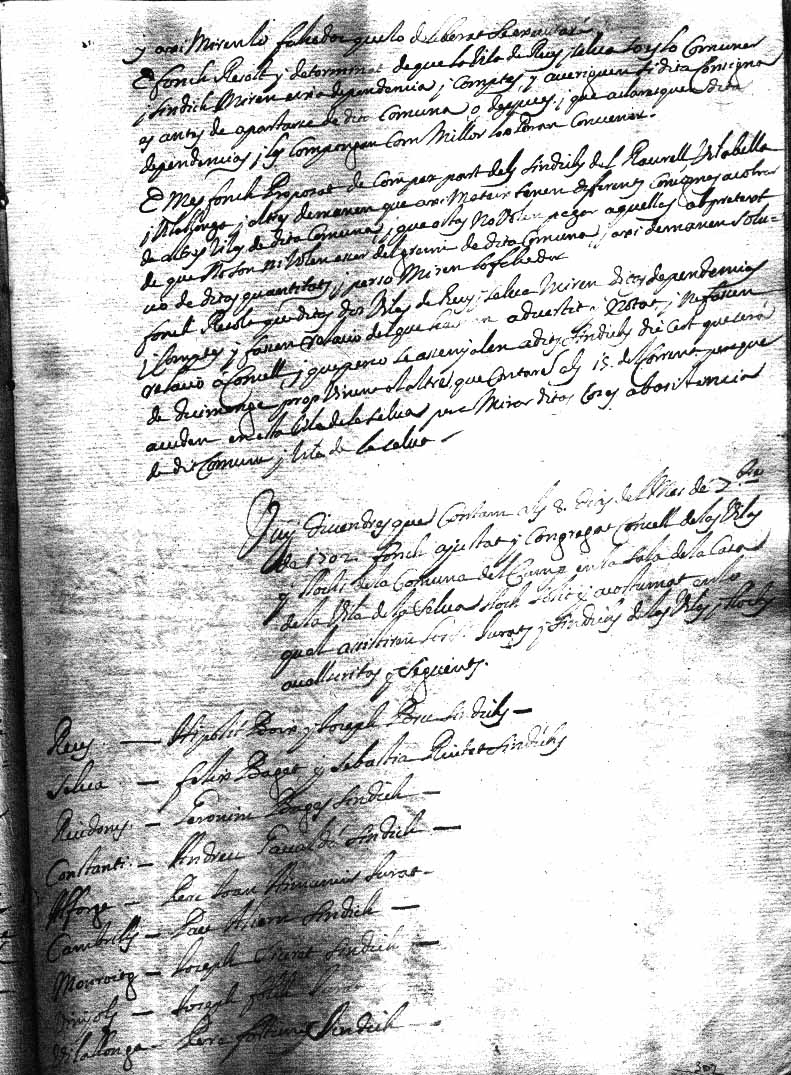 y axi Miren lo fahedor que lo deliberat se executará
E fonch Resolt y determinat de que la Vila de Reus y selva tot lo Comuner
y sindich Miren dependencia y Comptes y averiguen si dita Consigna
es antes de apartarse de dita Comuna o despues y que averiguen dita
dependencias y las Compongan Com Millor los Convenir.
E Mes fonch Proposat de Com per part dels sindichs del Raurell Vilabella
y Vilallonga y altres demanen que axi Mateix tenen diferents Consignes a cobrar
de altres Viles de dita Comuna y que estas No Volen pagar aquellas ab pretext
de que No son ni Volen esser del gremi de dita Comuna y axi demanen solu-
cio de ditas quantitats y perso Miren lo fahedor
fonch Resolt que ditas dos Viles de Reus y selva Miren ditas dependencias
y Comptes y fassen relacio del que hauran advertit y Notat y Ne fassen
relacio á Concell y que perco se assenyalen a dits sindichs dia Cert que será
de diumenge prop Vinent que Contarem als 15 del Corrent perque
acuden en esta Vila de la selva per Mirar ditas Coses ab assistencia
de dit Comuner y Vila de la selva
Vuy divendres que Contam als 8 dias del Mes de 7bre
de 1702 fonch ajustat y Congregat Concell de las Viles
y llochs de la Comuna del Camp en la sala de la Casa
de la Vila de la Selva lloch solit y acostumat en lo
qual assistiren los Jurats y sindichs de las Viles y llochs
avall escritas y seguents.
Reus — Hipolit y Joseph sindichs —
selva — Felix Baget y sebastia sindichs
Riudoms — Geronim Bages sindich —
Constanti — Andreu sindich —
Alforja — Pere Joan Jurat -
Cambrils — Pau sindich —
Monroig — Joseph sindich —
Vinyols — Joseph
Vilallonga — Pere fortuny sindich —
307